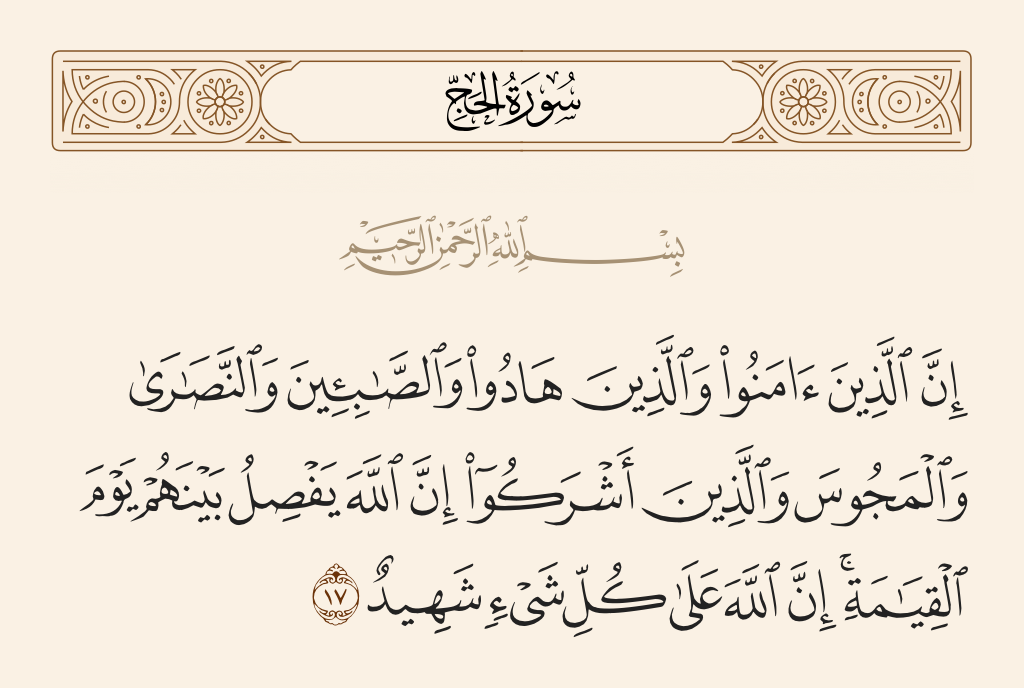 سُورَةُ الحَجِّ
بِسْمِ ٱللَّهِ ٱلرَّحْمَٰنِ ٱلرَّحِيمِ
إِنَّ ٱلَّذِينَ ءَامَنُوا۟ وَٱلَّذِينَ هَادُوا۟ وَٱلصَّٰبِـِٔينَ وَٱلنَّصَٰرَىٰ
وَٱلْمَجُوسَ وَٱلَّذِينَ أَشْرَكُوٓا۟ إِنَّ ٱللَّهَ يَفْصِلُ بَيْنَهُمْ يَوْمَ
ٱلْقِيَٰمَةِ ۚ إِنَّ ٱللَّهَ عَلَىٰ كُلِّ شَىْءٍ شَهِيدٌ ١٧